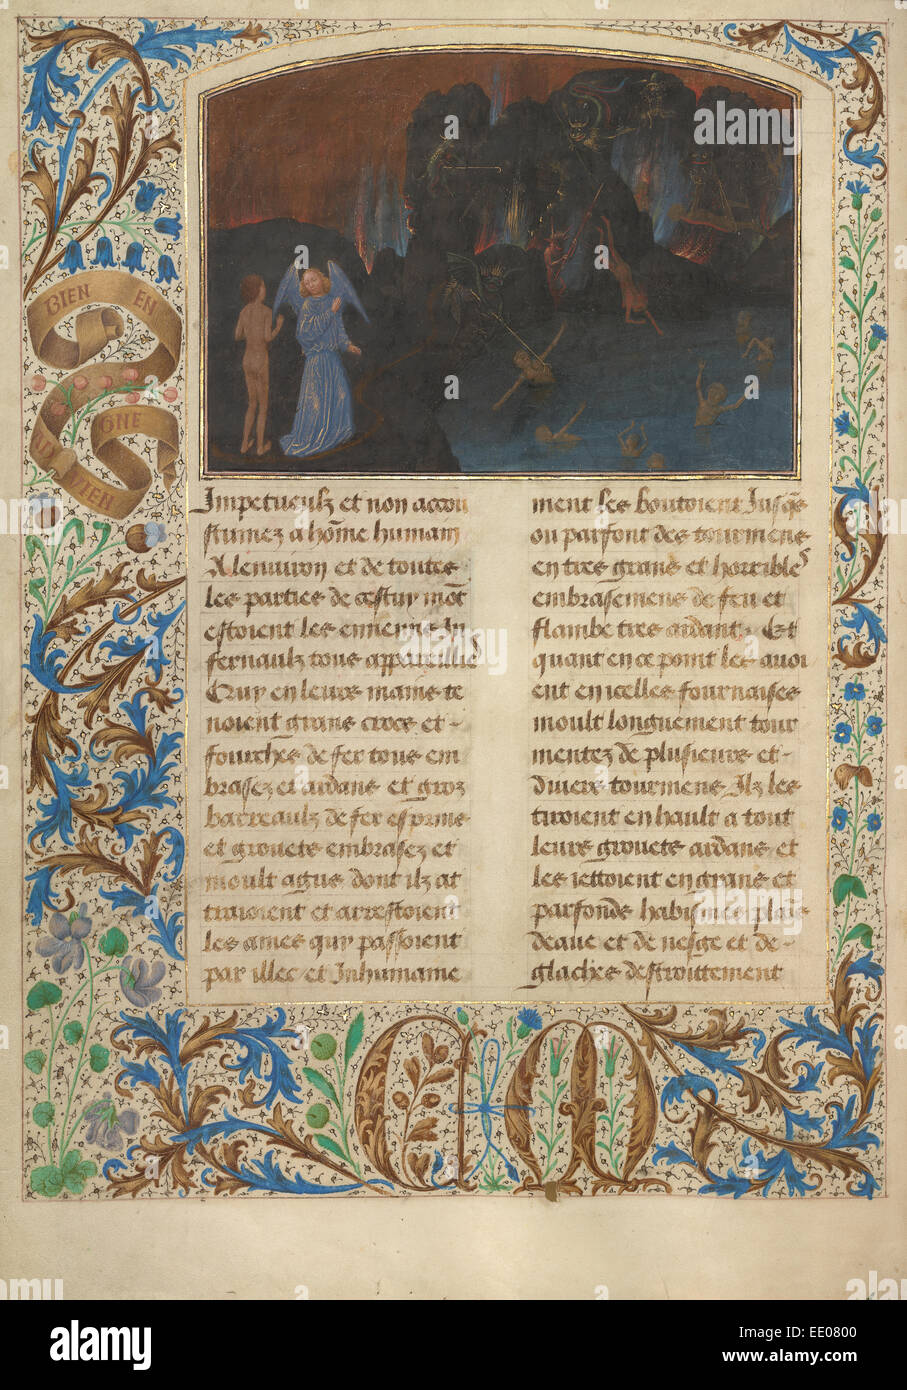 BIEN EN
AD VIEN
GNE
Impetueulz et non accou
stumez a hõme humain
A lenuiron et de toutes
les parties de cestuy mõt
estoient les ennemis In
fernaulz tous appareillies
Qui en leurs mains te
noient grans crocs et
fourches de fer tous em
brasez et ardans et groz
barreaulz de fer esprins
et grouets embrasez et
moult agus dont ilz at
traioient et arrestoient
les ames quy passoient
par illec et Inhumaine
ment les boutoient Jusq̃s
ou parfont des tourmens
en tres grans et horribles
embrasemens de feu et
flambe tres ardant. Et
quant en ce point les auoi
ent en icelles fournaises
moult longuement tour
mentez de plusieurs et
diuers tourmens Ilz les
tiroient en hault a tout
leurs grouets ardans et
les iettoient en grans et
parfonds habismes plains
deaue et de nesge et de
glaches destroittement
C M
a alamy stock photo
EE0800
www.alamy.com